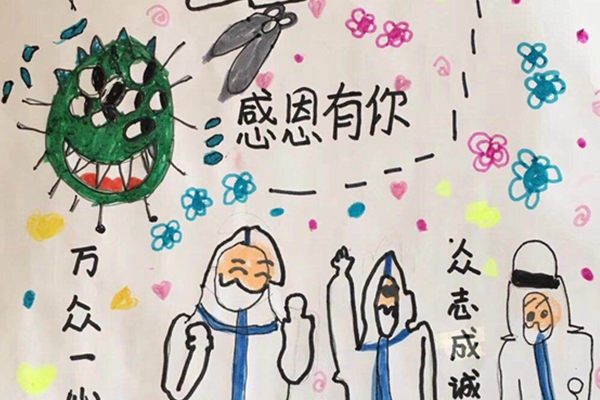 感恩有你
万众一心
众志成诚